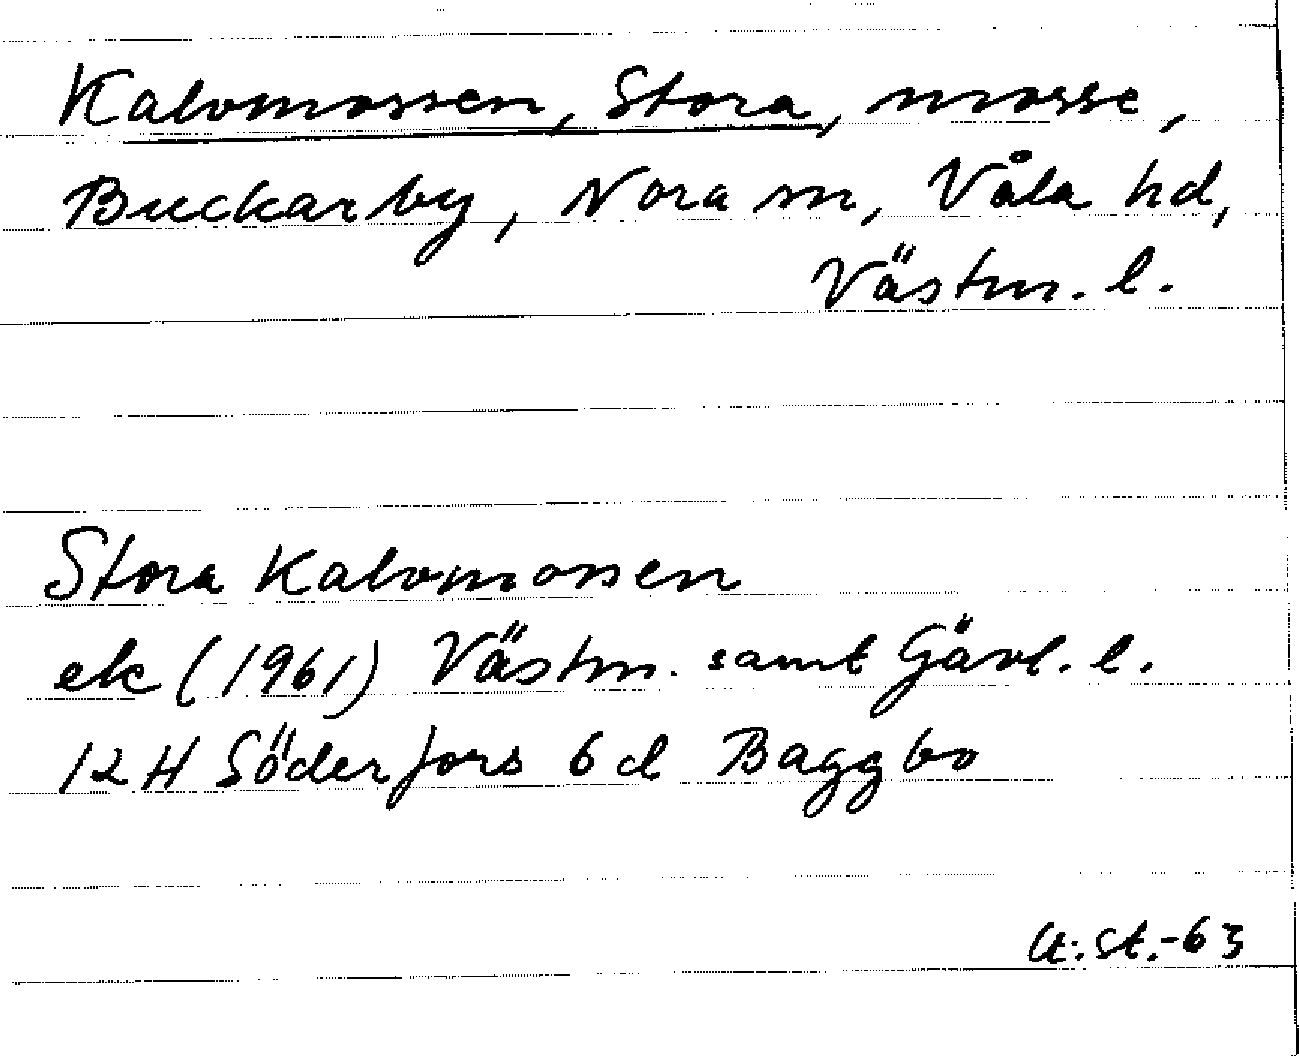 Kalvmossen, Stora, mosse,
Buckarby, Nora sn, Våla hd,
Västm. l.
Stora Kalvmossen
ek (1961) Västm. samt Gävl. l.
12 H Söderfors 6 d Baggbo
st.-63